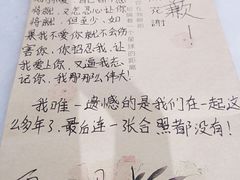 将就，又怎忍心让你
将就，但至少，如
果我不爱你就不会伤
害你，你招惹我，让
我爱上你，又逼我忘
记你，我那那么伟大！
我唯一遗憾的是我们在一起这
么多年了，最后连一张合照都没有！
星球的距离
歉
花